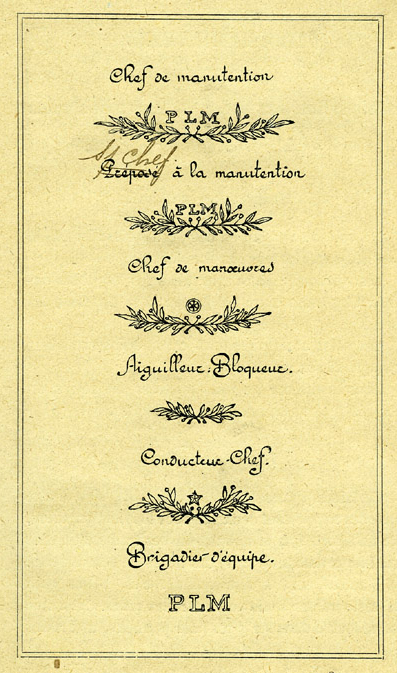 Chef de manutention
PLM
Ss chef
Préposé à la manutention
PLM
Chef de manœuvres
Aiguilleur-Bloqueur.
Conducteur-Chef.
Brigadier d'équipe.
PLM